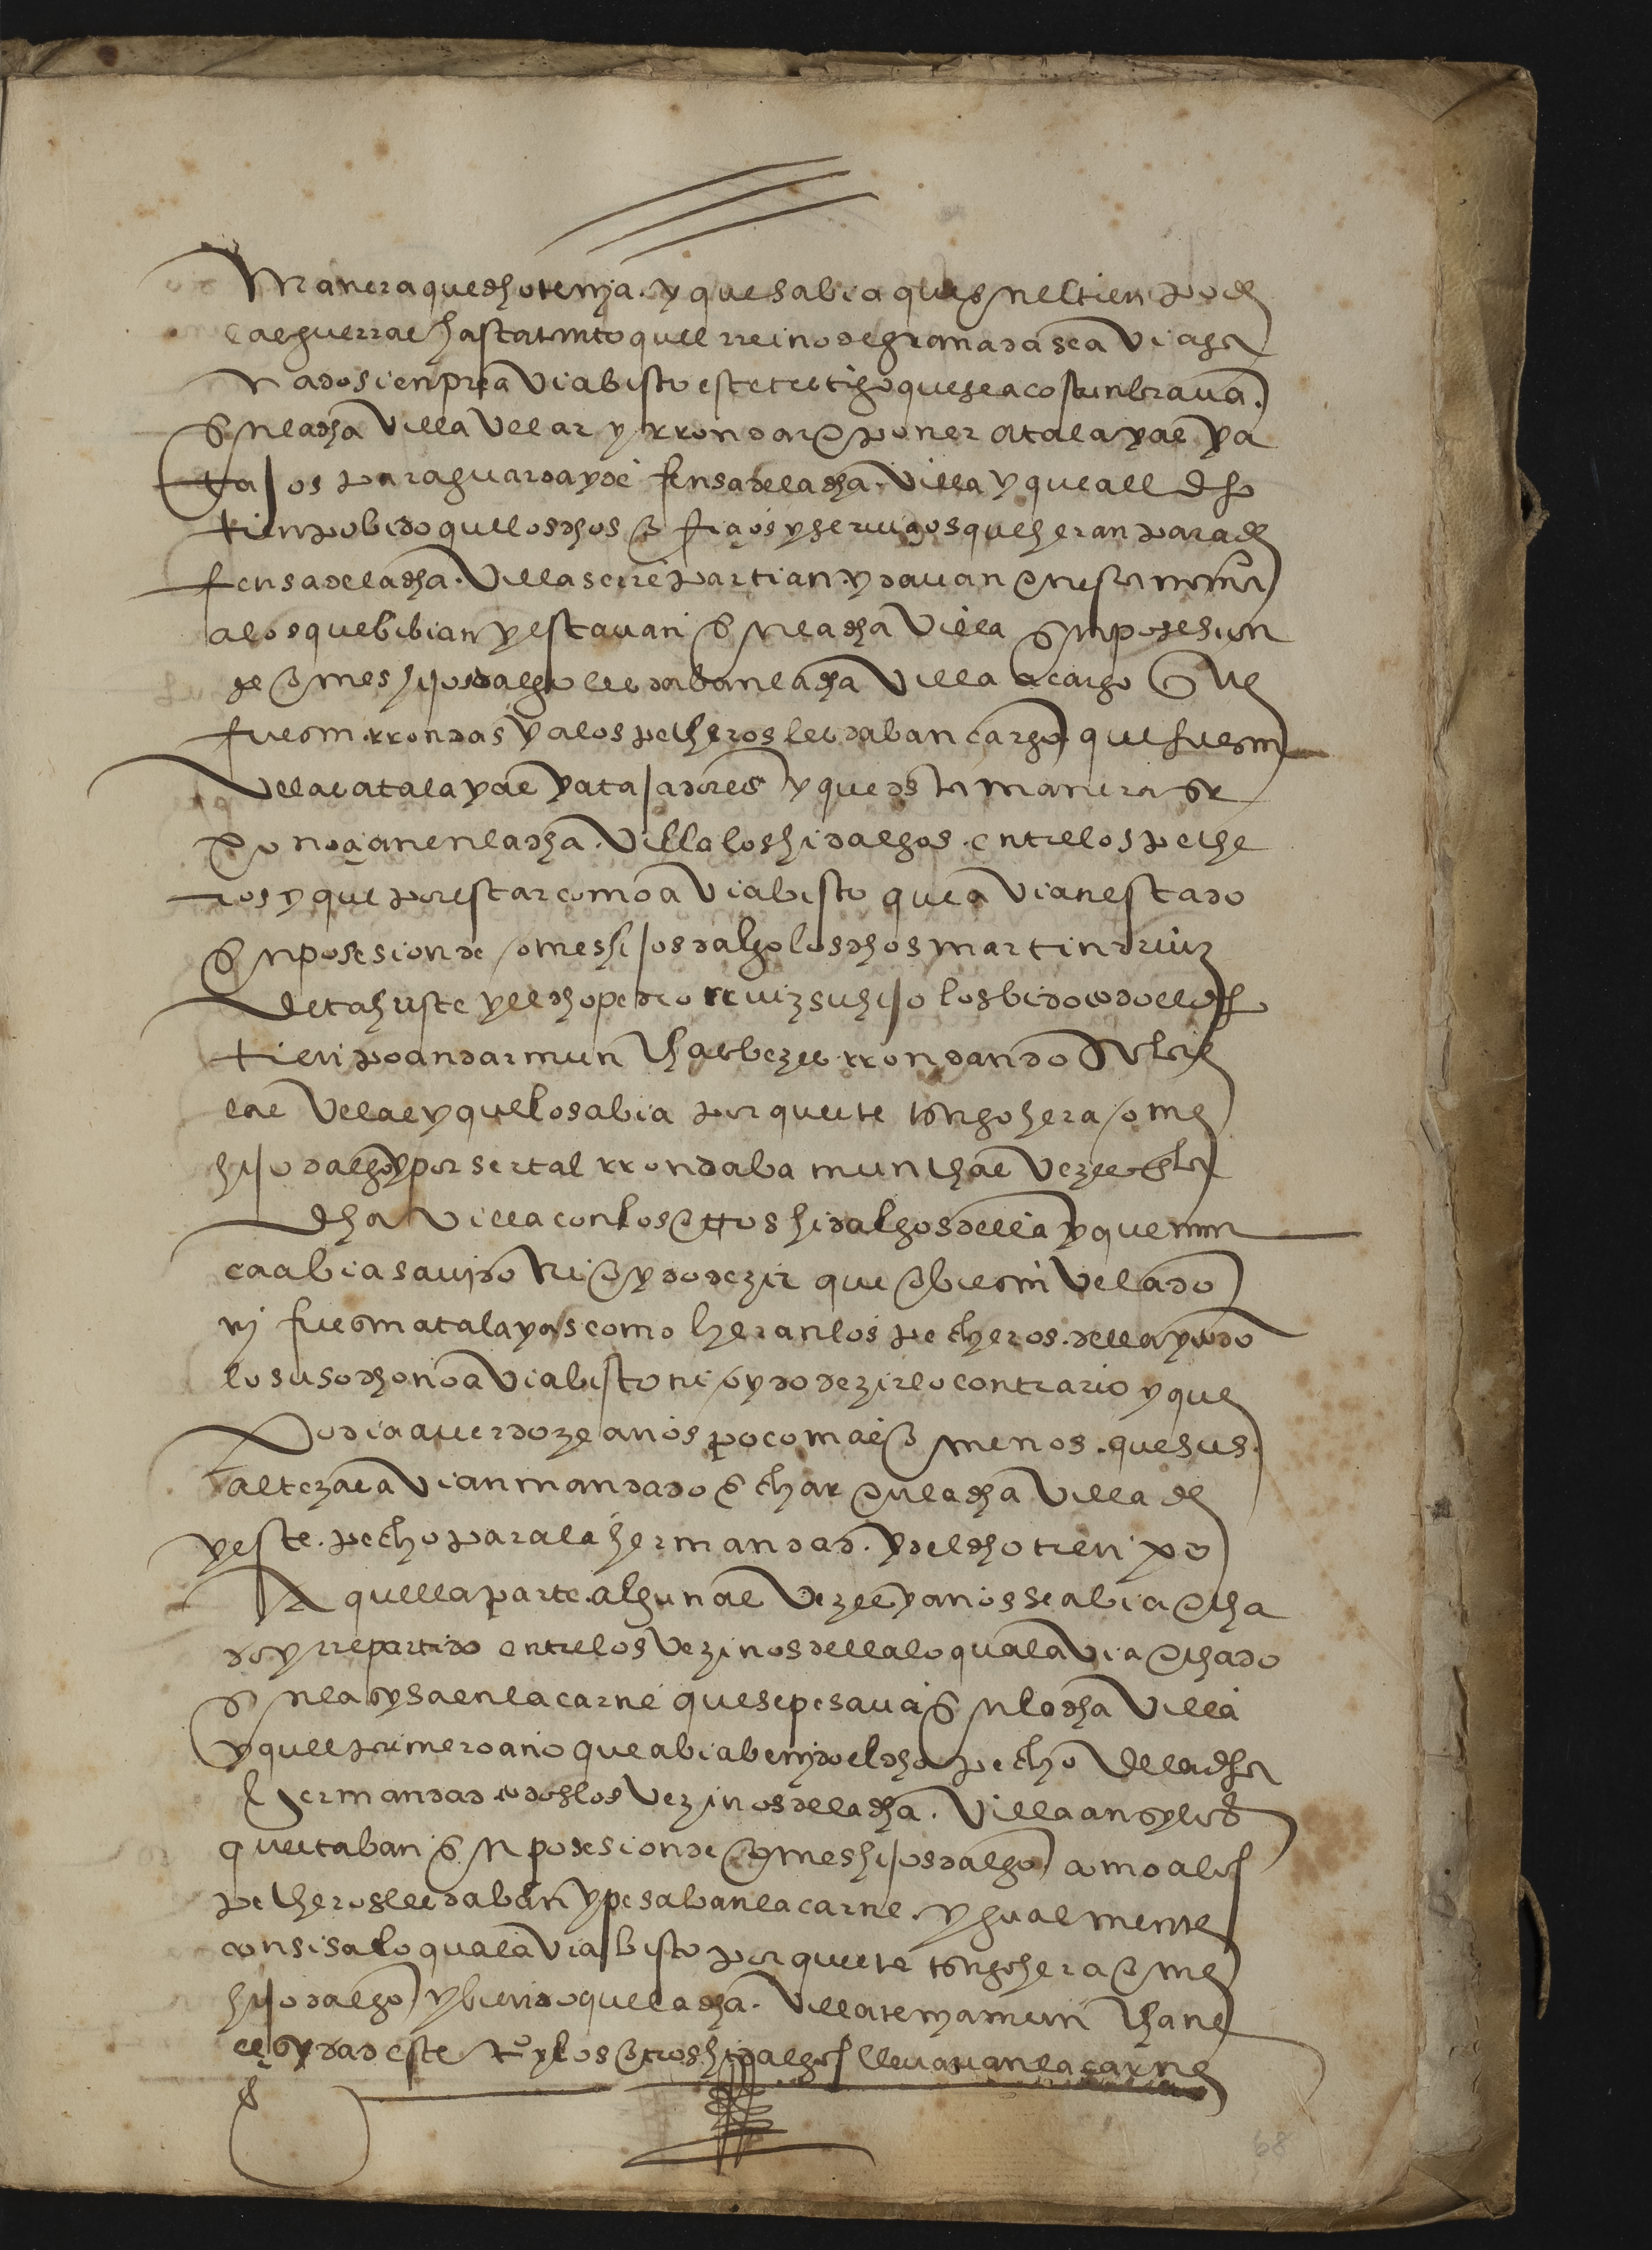 manera que dho tenja. y que sabia que en el tienpo de
las guerras hasta tanto quel rreino de granada se avia ga
nado sienpre avia bisto este testigo que se acostunbrava.
en la dha villa vellar y rrondar e poner atalayas y a
tajos para guarda y defensa de la dha. villa y que all dho
tienpo bido que los dhos oficios y serviçios que heran para de
fensa de la dha. villa se rrepartian. y davan en esta manera
a los que bibian y estavan en la dha villa en posesion
de omes hijosdalgo les daban la dha villa a cargo que
fuesen rrondas y a los pecheros les daban cargo que fuesen
vellas atalayas y atajadores y que desta manera se
conoçian en la dha. villa los hidalgos. entre los peche
ros y que por estar como avia bisto que avian estado
en posesion de omes hijosdalgo los dhos martin rruiz
de tahuste y el dho pedro rruiz su hijo los bido todo el dho
tienpo andar munchas bezes rrondando sobre
las velas y que lo sabia porqueste tstigo hera ome
hijodalgo y por ser tal rrondaba munchas vezes en la
dha villa con los otros hidalgos della y que nun
ca abia savido ni oydo dezir que obiesen velado
nj fuesen atalayas como heran los pecheros. della y todo
lo susodho no avia bisto ni oydo dezir lo contrario y que
podia aver doze anos poco mas o menos. que sus.
altezas avian mandado echar en la dha villa de
yeste. pecho para la hermandad. y del dho tienpo
a quella parte. algunas vezes y anos se abia echa
do y rrepartido entre los vezinos della lo qual avia echado
en la sysa en la carne que se pesava en la dha villa
y quel primero ano que abia benjdo el dho pecho de la dha
hermandad todos los vezinos de la dha. villa ansy los
questaban en posesion de omes hijosdalgo como a los
pecheros les daban y pesaban la carne. ygualmente
con sisa lo qual avia bisto porqueste tstigo hera ome
hijodalgo y biendo que la dha. villa tenja muncha ne
cesydad este to y los otros hidalgos llevavan la carne
68